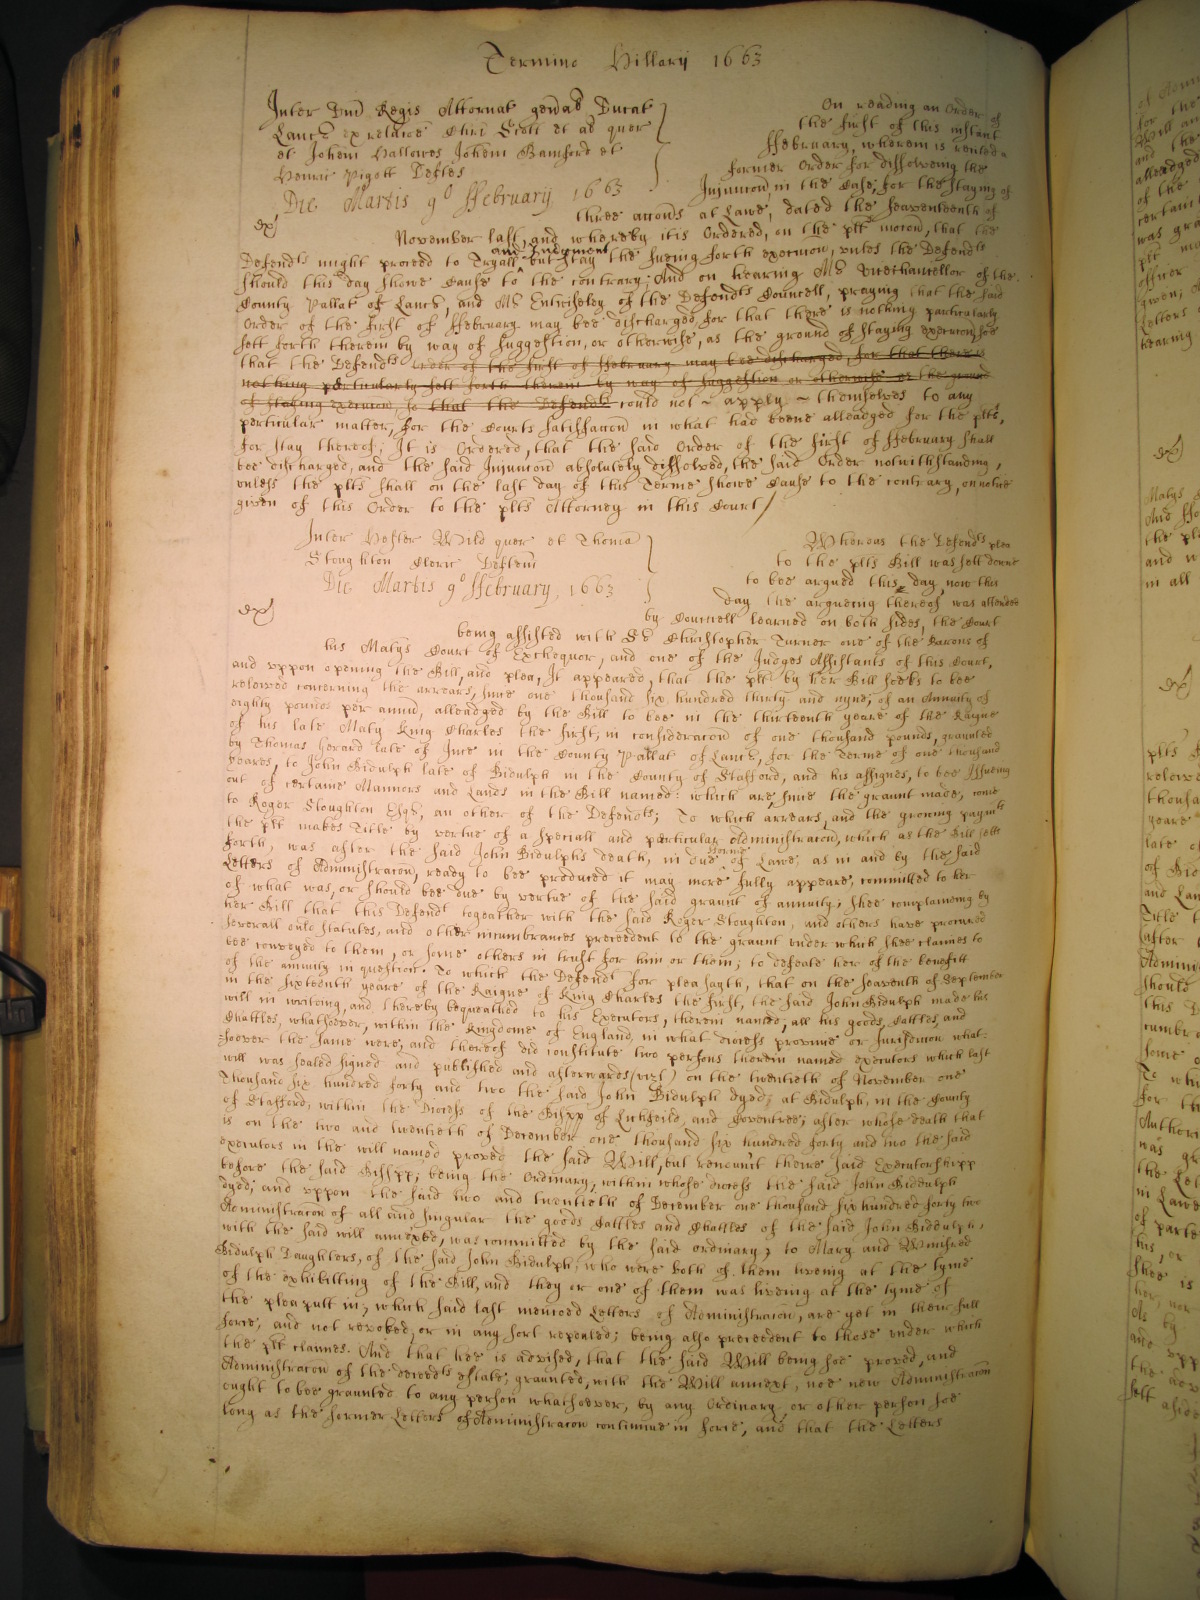 Termino Hillarij 1663
Inter Dnū Regis Attornat genāt Ducat
Lancr ex relacōe Chri Scott et ad quer
et Johem Hallowes Johem Bamford et
Henric Pigott Deftes
Die Martis 9º ffebruary 1663
On reading an Order of
the first of this instant
ffebruary, wherein is recited a
former Order for dissolveing the
Iniuncon, in the Case, for the staying of
three accons at Lawe, dated the seaventeenth of
November last, and whereby itis Ordered, on the plts mocon, that the
Defendts might proceed to Tryall and Iudgment but stay the sueing forth execucion, unles the Defendts
should this day showe Cause to the contrary; And on hearing Mr Vicechancellor of the
County Pallat of Lancr, and Mr Entwisley of the Defendts Councell, praying that the said
Order of the first of ffebruary may bee discharged, for that there is nothing particularly
sett forth therein by way of suggestion, or otherwise, as the ground of staying execucon, soe
that the Defendts Order of the first of ffebruary may bee discharged, for that there is
nothing pticularly sett forth therein by way of suggestion or otherwise as the ground
of staying execucon, so that the Defendts could not apply themselves to any
perticular matter, for the Courts satisfaccon in what had beene alleadged for the plts,
for stay thereof; It is Ordered, that the said Order of the first of ffebruary shall
bee discharged, and the said Iniuncon absolutely dissolved, the said Order notwithstanding,
unless the plts shall on the last day of this Terme showe Cause to the contrary, on notice
given of this Order to the plts Attorney in this Court/
Inter Hester Wild quer et Thoma
Stoughton Cleric Deftem
Die Martis 9º ffebruary, 1663
Whereas the Defendts plea
to the plts Bill was sett downe
to bee argued this day, now this
day the argueing thereof was attended
by Councell learned on both sides, the Court
being assisted with Sr Christopher Turner one of the Barons of
his Matys Court of Exchequor, and one of the Judges Assistants of this Court,
and uppon opening the Bill, and plea, It appeared, that the plt by her Bill seeks to bee
releived concerning the arrears, since one thousand six hundred thirty and nyne, of an Annuity of
eighty pounds per annū, alleadged by the Bill to bee in the thirteenth yeare of the Raigne
of his late Maty King Charles the first, in consideracon of one thousand pounds, graunted
by Thomas Gerard late of Ince in the County Pallat of Lancr, for the Terme of one thousand
yeares, to John Bidulph late of Bidulph in the County of Stafford, and his assignes, to bee Issueing
out of certaine Mannors and Lands in the Bill named: which are, since the graunt made, come
to Roger Stoughton Esqr, an other of the Defendts; To which arrears, and the growing paymts
the plt makes Title by vertue of a speciall and perticular Administracon, which as the Bill setts
forth, was after the said John Bidulphs death, in due forme of Lawe, as in and by the said
Letters of Administracon, ready to bee produced it may more fully appeare, committed to her
of what was, or should bee due by vertue of the said graunt of annuity; shee complaineing by
her Bill that this Defendt togeather with the said Roger Stoughton, and others have procured
severall ould statutes, and other incumbrances preceedent to the graunt under which shee claimes to
bee conveyed to them, or some others in trust for him or them; to defeate her of the benefitt
of the annuity in question: To which the Defendt for plea sayth, that on the seaventh of September
in the sixteenth yeare of the Raigne of King Charles the first, the said John Bidulph made his
will in writeing, and thereby bequeathed to his Executors, therein named, all his goods, Cattles, and
Chattles, whatsoever, within the Kingdome of England, in what diocess province or Jurisdiccon what-
soever the same were, and thereof did constitute two persons therein named executors which last
will was sealed signed and published and afterwards (vizt) on the twentieth of November one
Thousand six hundred forty and two the said John Bidulph dyed, at Bidulph, in the County
of Stafford, within the Diocess of the Bishpp of Lichfeild, and Coventree; after whose death that
is on the two and twentieth of December one thousand six hundred forty and two the said
executors in the will named proved the said Will, but renounct theire said Executorshipp
before the said Bishpp; being the Ordinary, within whose diocess the said John Bidulph
dyed; and uppon the said two and twentieth of December one thousand six hundred forty two
Administracon of all and singular the goods Cattles and Chattles of the said John Bidulph,
with the said will annexed, was committed by the said ordinary, to Mary and Winifred
Bidulph Daughters, of the said John Bidulph, who were both of them liveing at the tyme
of the exhibitting of the Bill, and they or one of them was liveing at the tyme of
the plea putt in, which said last menconed Letters of Administracon, are yet in their full
force, and not revoked, or in any sort repealed; being also preceedent to those under which
the plt claimes. And that hee is advised, that the said Will being soe proved, and
Administracon of the decedts estate, graunted, with the Will annext, noe new Administracon
ought to bee graunted to any person whatsoever, by any Ordinary, or other person soe
long as the former Letters of Administracon continue in force, and that the Letters